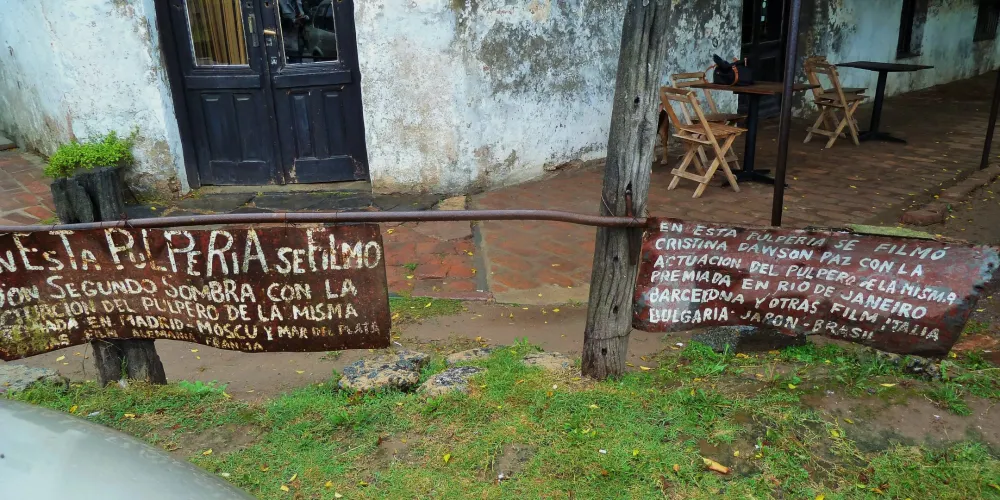 EN ESTA PULPERIA SE FILMO
DON SEGUNDO SOMBRA CON LA
ACTUACION DEL PULPERO DE LA MISMA
EN MADRID-MOSCU Y MAR DEL PLATA
FRANCIA
EN ESTA PULPERIA SE FILMO
CRISTINA DAWSON PAZ CON LA
ACTUACION DEL PULPERO DE LA MISMA
PREMIADA EN RIO DE JANEIRO
BARCELONA Y OTRAS FILM. ITALIA
BULGARIA-JAPON-BRASIL